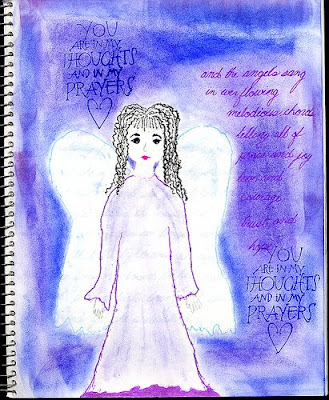 YOU
ARE IN MY
THOUGHTS
AND IN MY
PRAYERS
and the angels sang
in everflowing
melodious chord
telling all of
peace and joy
love and
courage
trust and
hope
YOU
ARE IN MY
THOUGHTS
AND IN MY
PRAYERS